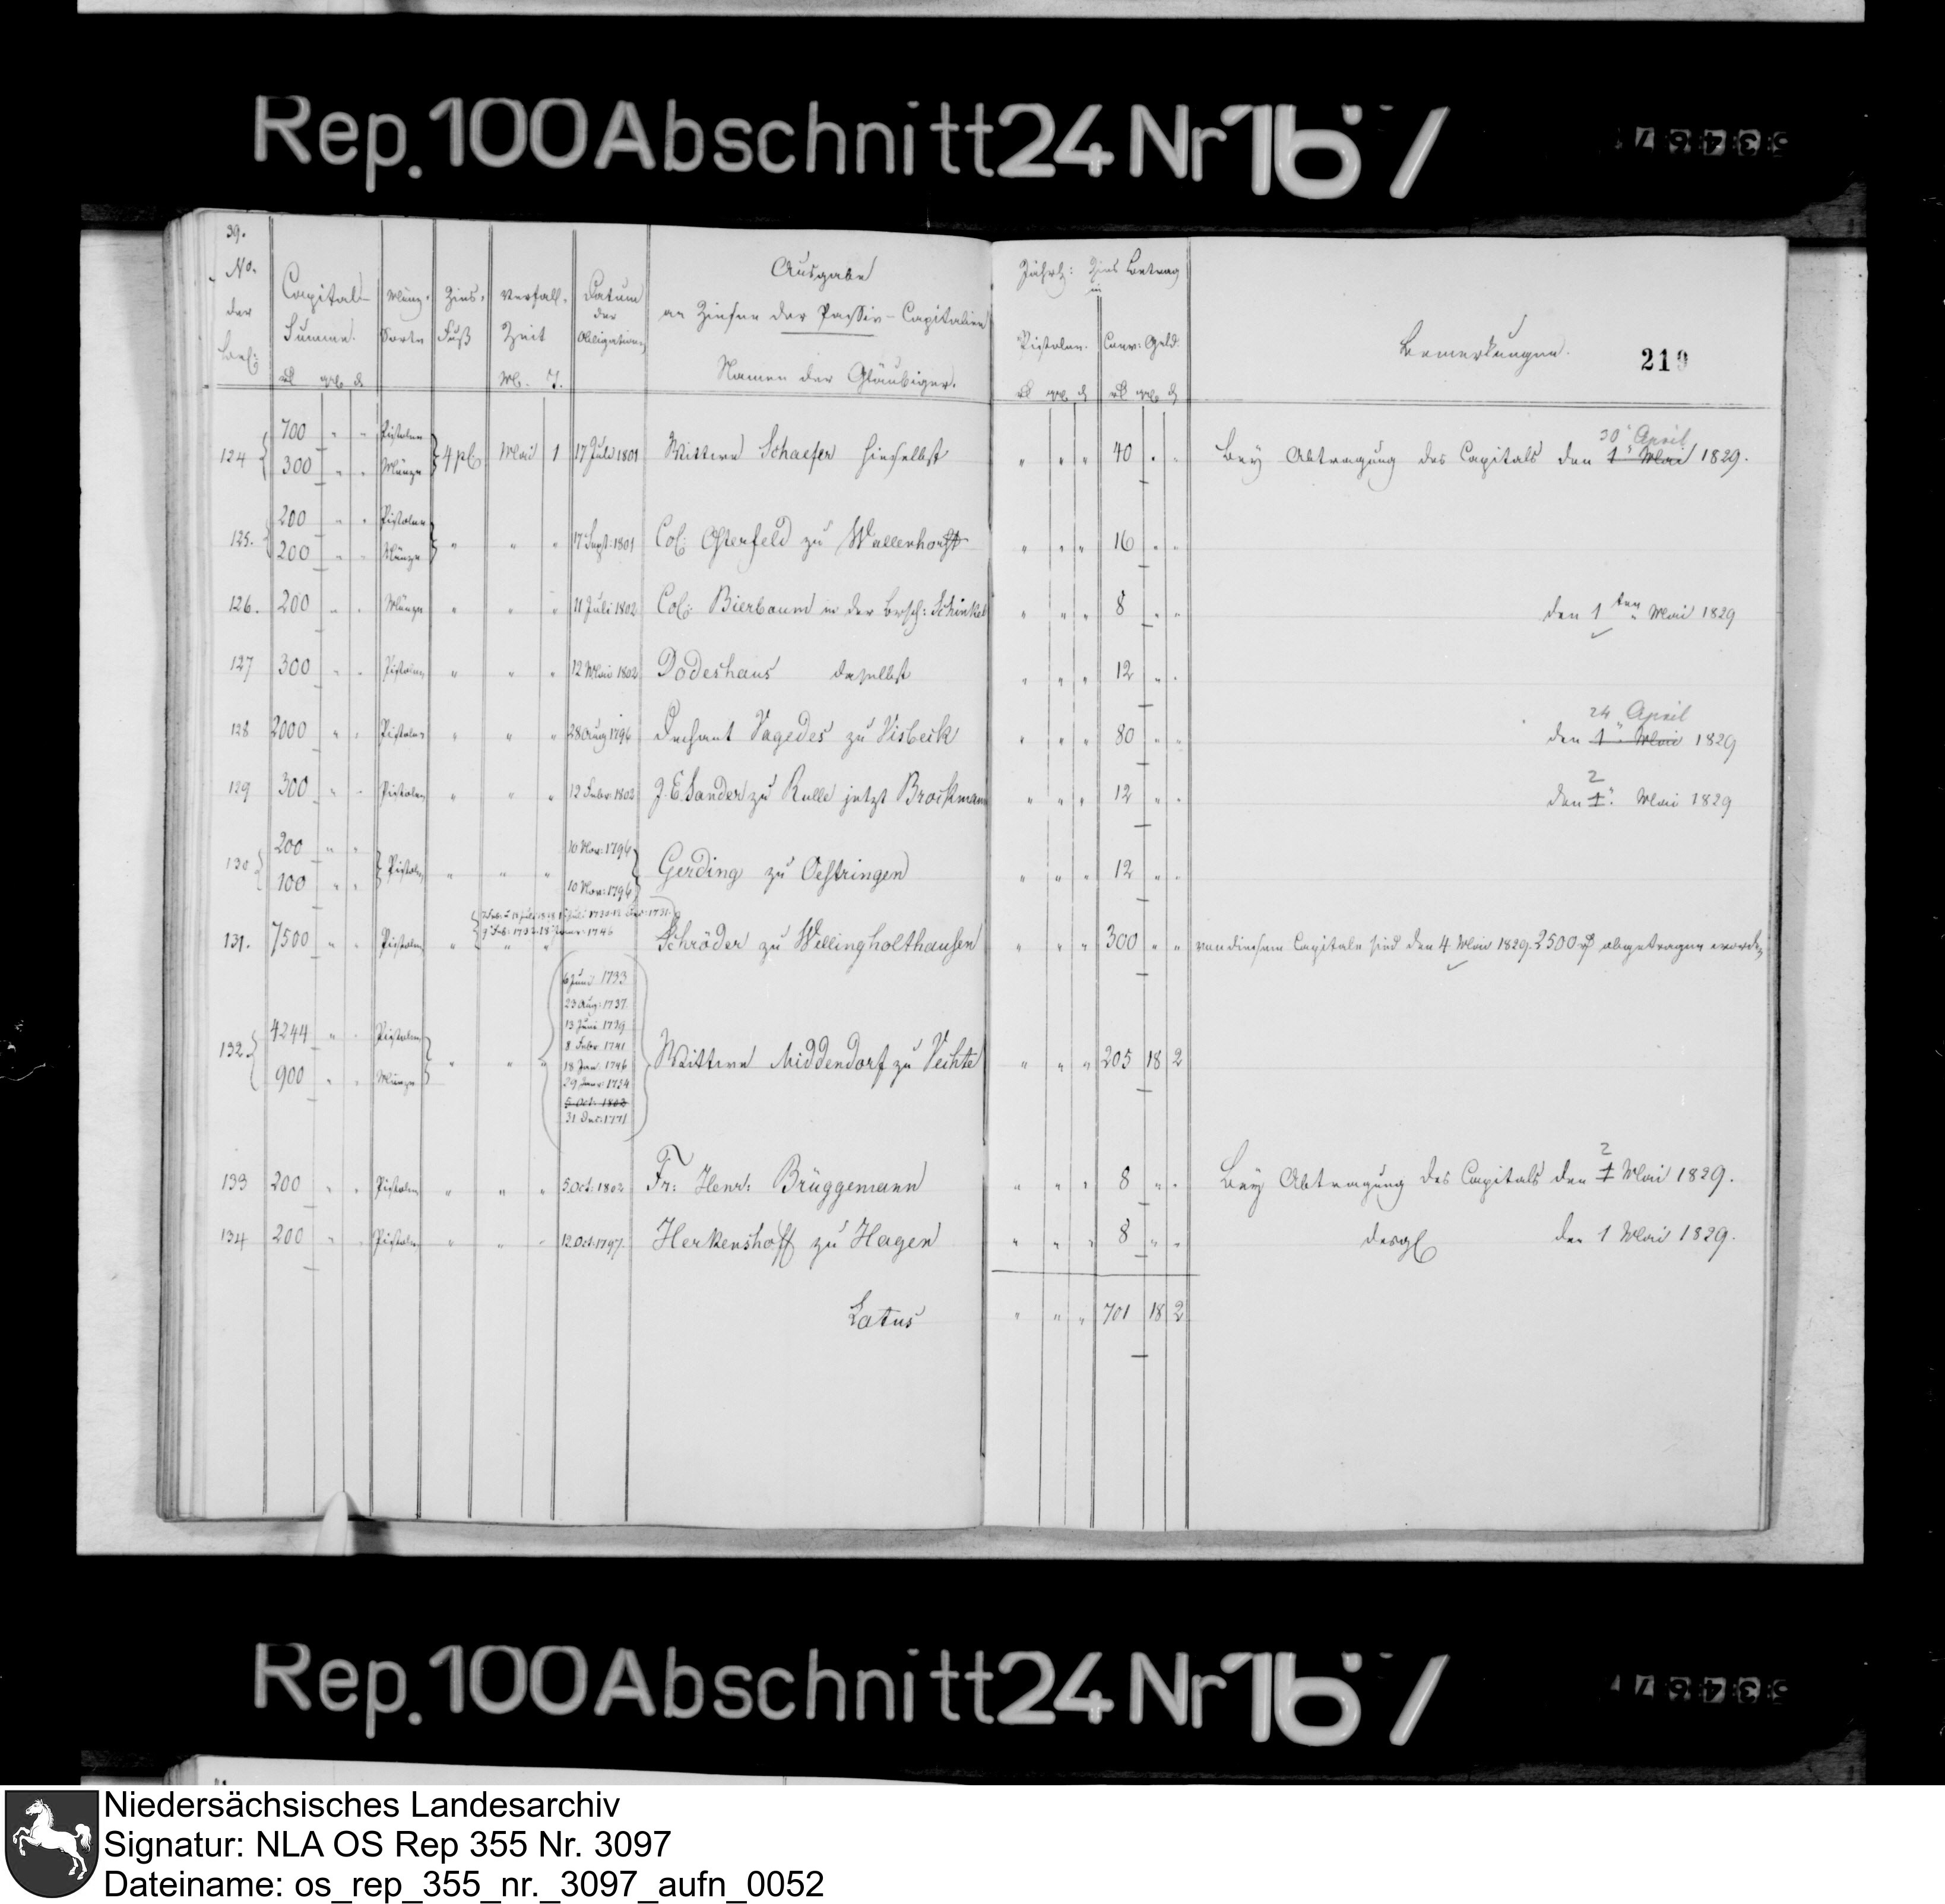 Rep. 100 Abschnitt 24 Nr 167
39.
No. der Bel:
Capital-Summe.
Münz-Sorte
Zins-Fuß
Verfall-Zeit
M. T.
Datum der Obligationen
Ausgabe
an Zinsen der Passiv-Capitalien
Namen der Gläubiger.
Jährl: Zins Betrag
in
Pistolen. Conv: Geld.
Bemerkungen.
219
124 { 700 " " Pistolen
300 " " Münze } 4 pC Mai 1 17 Juli 1801 Wittwe Schaefer hieselbst " " " 40 " " Bey Abtragung des Capitals den 1" Mai 30" April 1829.
125. { 200 " " Pistolen
200 " " Münze } " " " 17 Sept: 1801 Col: Osterfeld zu Wallenhorst " " " 16 " "
126. 200 " " Münze " " " 11 Juli 1802 Col: Bierbaum in der Brsch: Schinkel " " " 8 " " den 1ten Mai 1829
127 300 " " Pistolen " " " 12 Mai 1802 Dodeshaus daselbst " " " 12 " "
128 2000 " " Pistolen " " " 28 Aug 1796 Dechant Vagedes zu Visbeck " " " 80 " " den 1" Mai 24 April 1829
129 300 " " Pistolen " " " 12 Febr: 1802 J. E. Sander zu Rulle jetzt Brockmann " " " 12 " " den 1" 2 Mai 1829
130 { 200 " "
100 " " } Pistolen " " " 10 Nov: 1796
10 Nov: 1796 } Gerding zu Oestringen " " " 12 " "
131. 7500 " " Pistolen " " " Schröder zu Wellingholthausen " " " 300 " " von diesem Capitale sind den 4 Mai 1829. 2500 rl abgetragen worden
132 { 4244 " " Pistolen
900 " " Münze } " " "
6 Juni 1733
23 Aug: 1737
13 Juni 1739
8 Febr 1741
18 Jan 1746
29 Janr: 1754
5 Oct: 1802
31 Dec: 1771
Wittwe Middendorf zu Vechte " " " 205 18 2
133 200 " " Pistolen " " " 5 Oct: 1802 Fr: Henr: Brüggemann " " " 8 " " Bey Abtragung des Capitals den 1 2 Mai 1829.
134 200 " " Pistolen " " " 12 Oct: 1797. Herkenshoff zu Hagen " " " 8 " " desgl den 1 Mai 1829.
Latus " " " 701 18 2
Rep. 100 Abschnitt 24 Nr 167
Niedersächsisches Landesarchiv
Signatur: NLA OS Rep 355 Nr. 3097
Dateiname: os_rep_355_nr._3097_aufn_0052